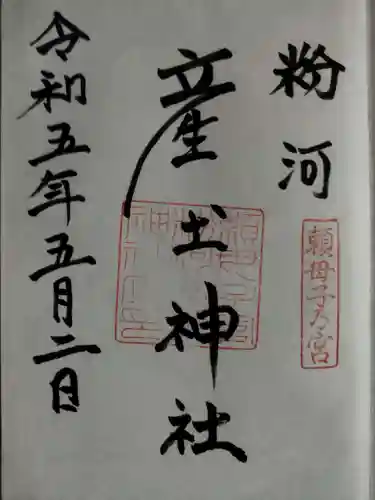 粉河
頼母子乃宮
産土神社
令和五年五月二日